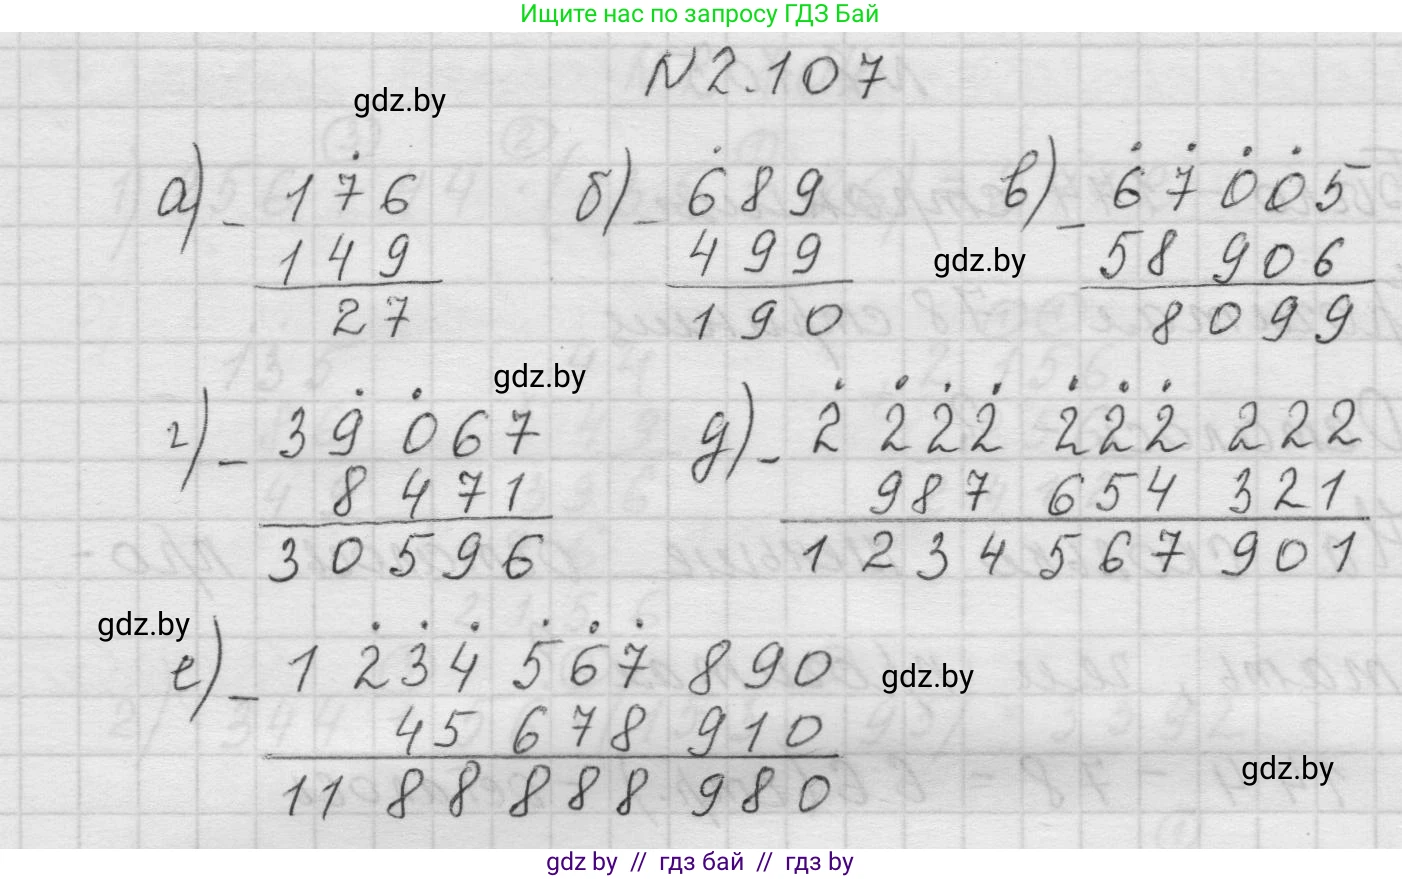 Ищите нас по запросу ГДЗ Бай
N 2.107
gdz.by
а) - 176
149
27
б) - 689
499
190
в) - 67 005
58 906
8099
gdz.by
gdz.by
г) - 39 067
8 471
30596
д) - 2 222 222 222
987 654 321
1 234 567 901
gdz.by
е) - 1 234 567 890
45 678 910
11 88 888 980
gdz.by
gdz.by
gdz by // гдз бай // гдз by